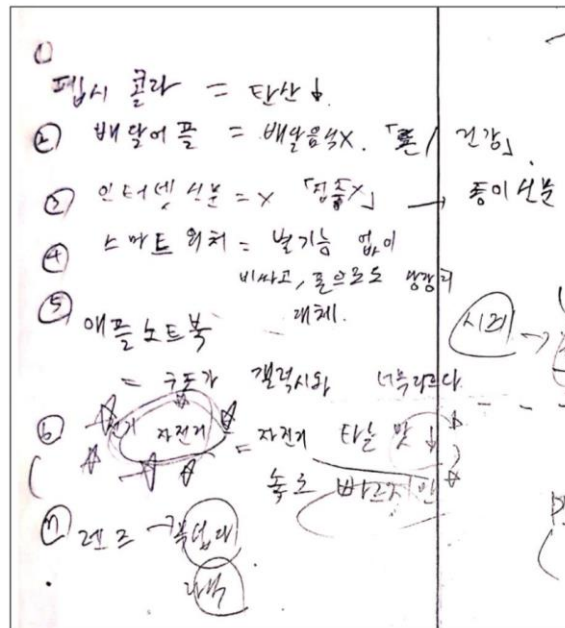 ①
펩시 콜라 = 탄산↓.
② 배달어플 = 배달음식X. 「돈/건강」.
③ 인터넷신문 = X 「집중X」 → 종이신문
④ 스마트워치 = 별기능 없이
비싸고, 폰으로도
대체.
⑤ 애플노트북
= 구도가 갤럭시와 너무다르다.
시계 →
⑥ 전기 자전거 = 자전거 타는 맛↓
속도 빠르지만
⑦ 렌즈